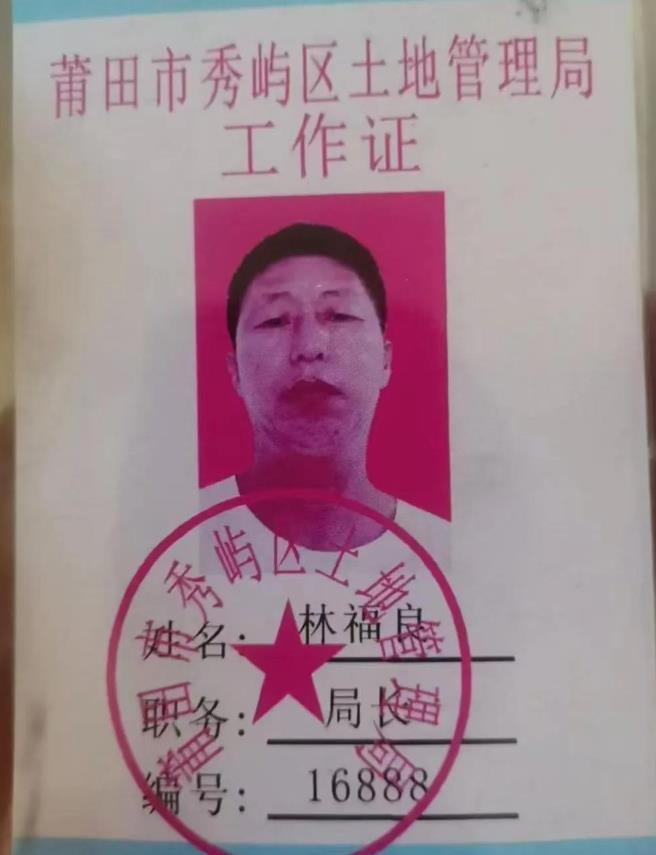 莆田市秀屿区土地管理局
工作证
莆田市秀屿区土地管理局
姓名：林福良
职务：局长
编号：16888